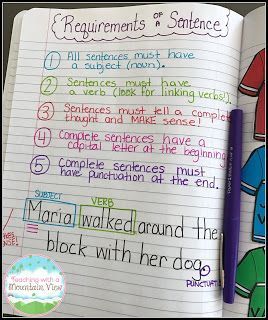 Requirements OF A Sentence
1 All sentences must have
a subject (noun).
2 Sentences must have
a verb (look for linking verbs!).
3 Sentences must tell a complete
thought and MAKE sense!
4 Complete sentences have a
capital letter at the beginning
5 Complete sentences must
have punctuation at the end.
SUBJECT VERB
Maria walked around the
block with her dog.
PUNCTUAT
Teaching with a
Mountain View